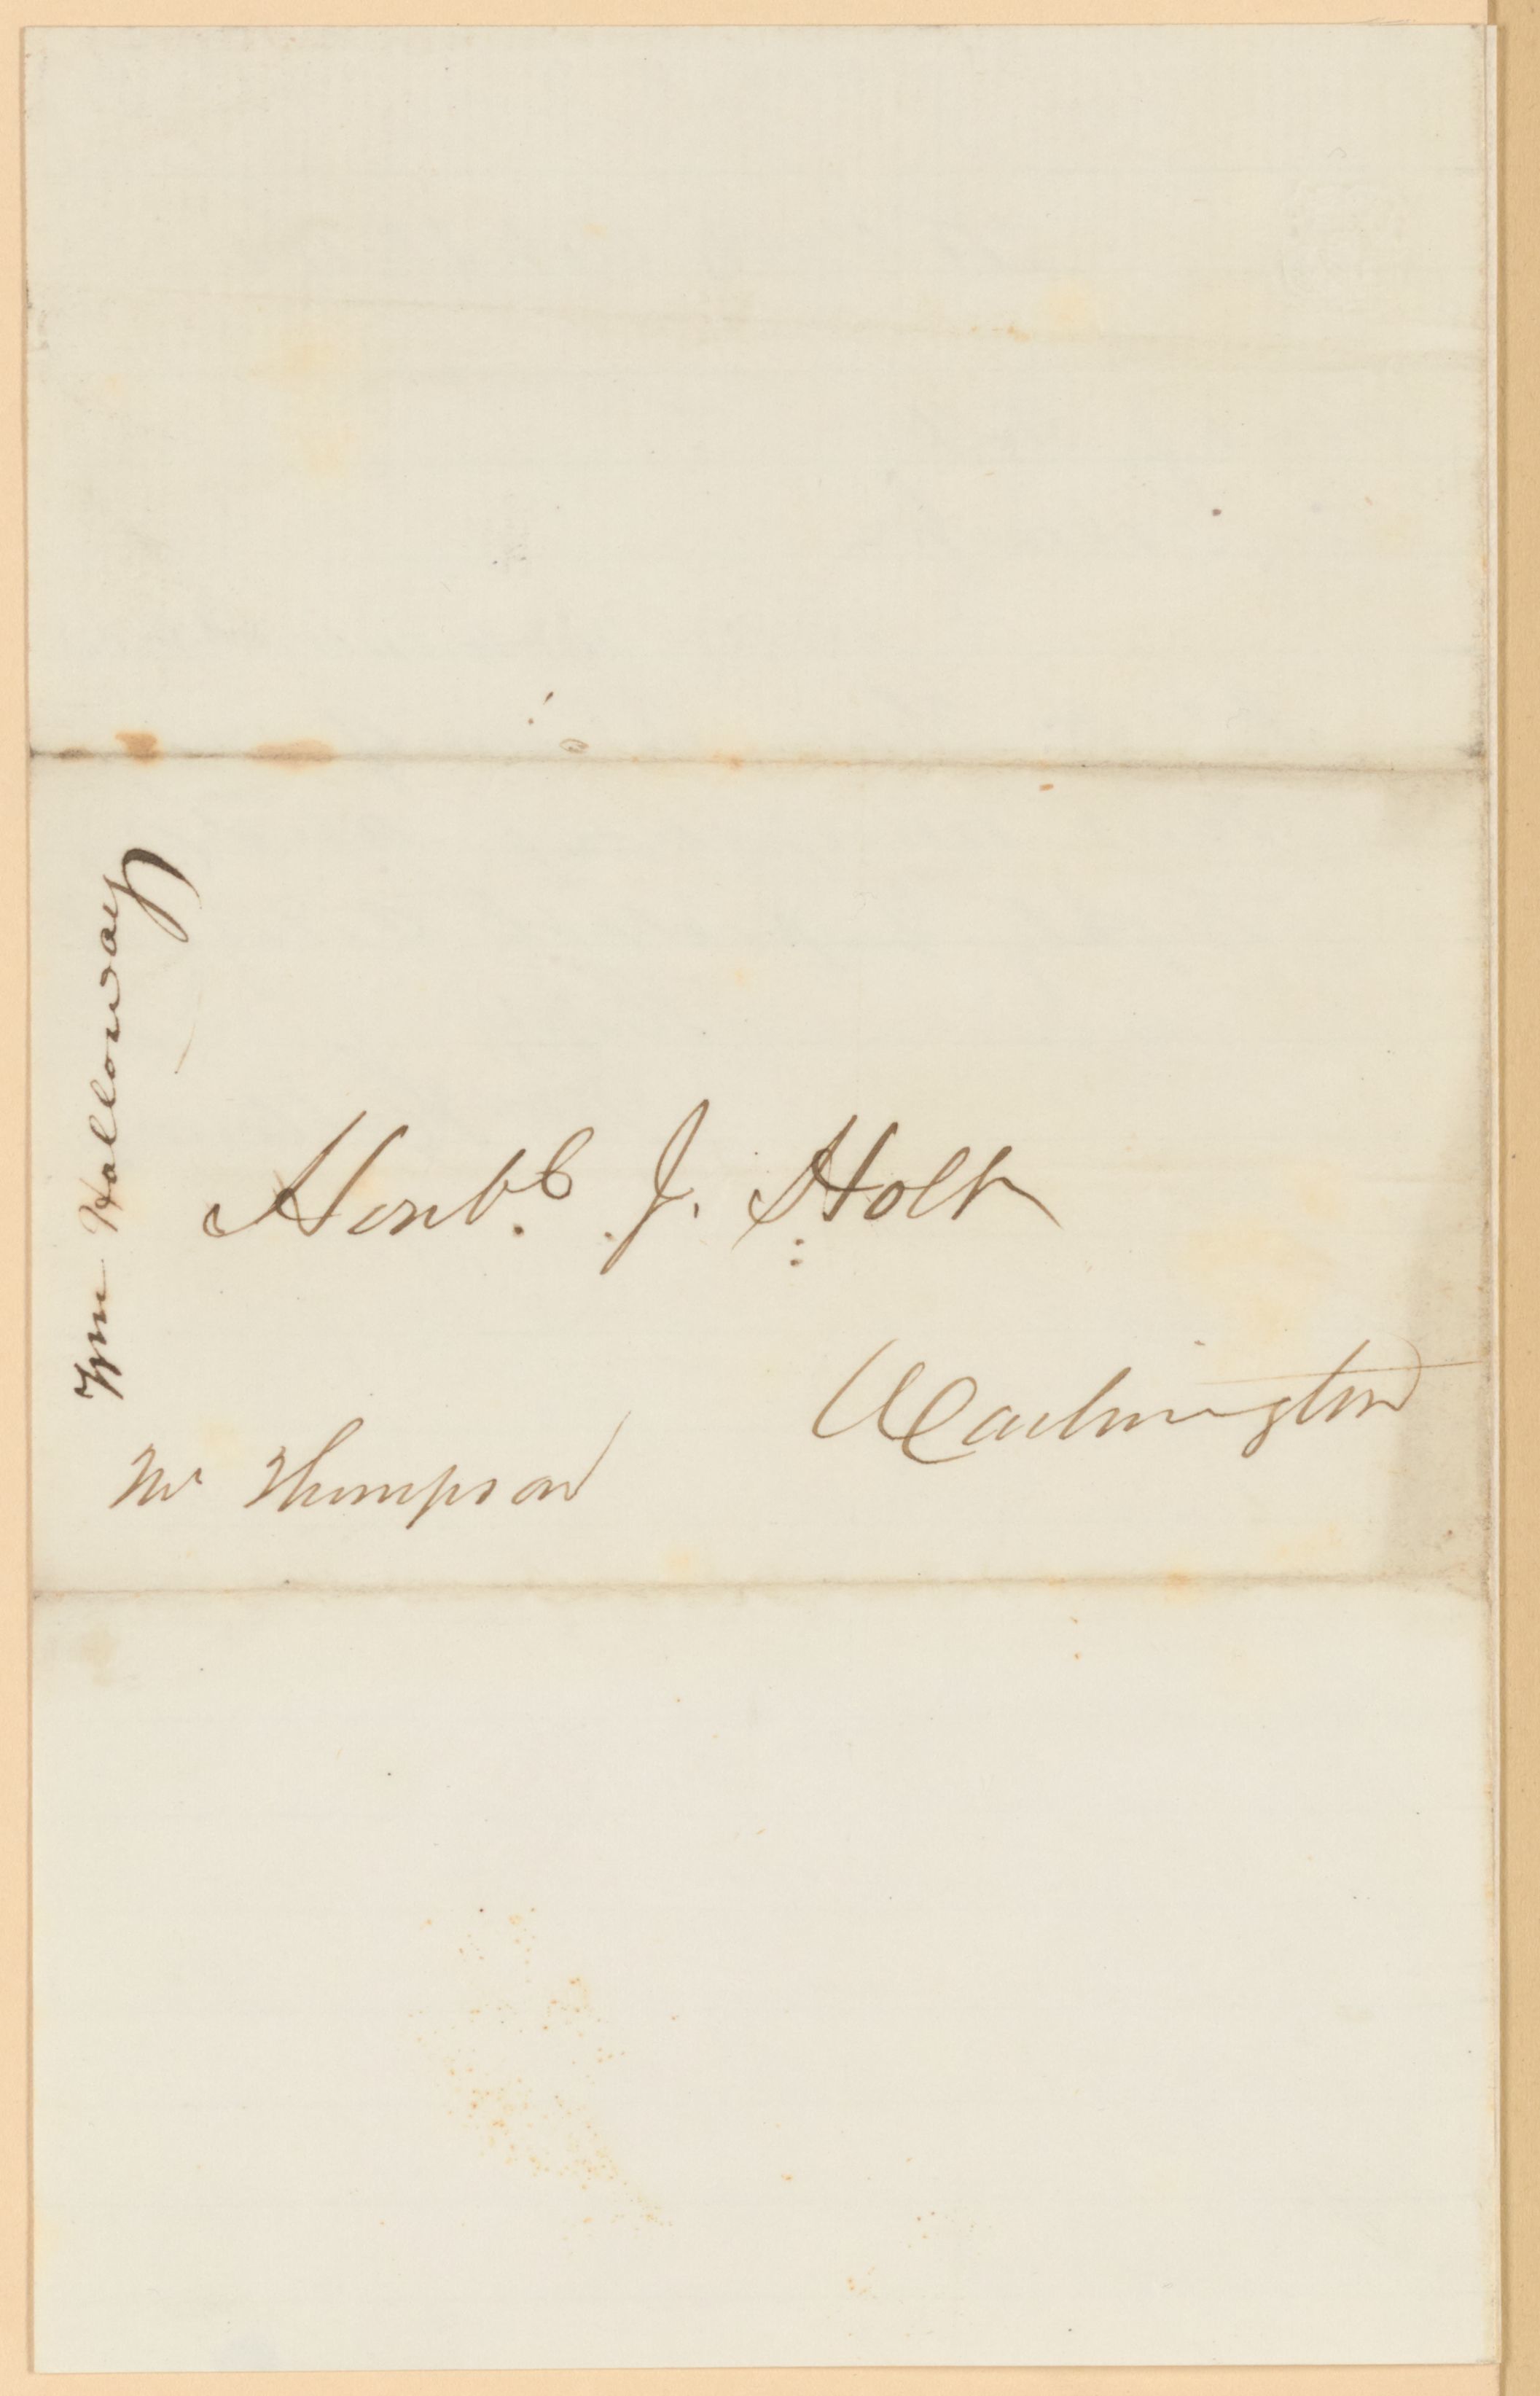 Wm Holloway
Honble. J. Holt
Washington
Mr Thompson